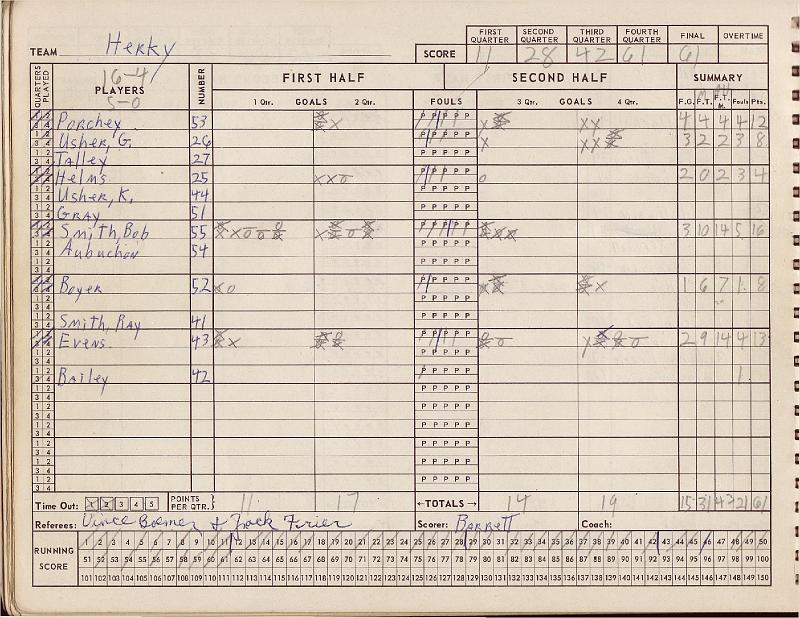 TEAM Herky
SCORE FIRST QUARTER 11 SECOND QUARTER 28 THIRD QUARTER 42 FOURTH QUARTER 61 FINAL 61 OVERTIME
QUARTERS PLAYED PLAYERS 16-4 5-0 NUMBER FIRST HALF SECOND HALF SUMMARY
1 Qtr. GOALS 2 Qtr. FOULS 3 Qtr. GOALS 4 Qtr. F.G. F.T. F.T. M. Fouls Pts.
Porchey 53 4 4 4 4 12
Usher, G. 26 3 2 2 3 8
Talley 27
Helms 25 2 0 2 3 4
Usher, K. 44
Gray 51
Smith, Bob 55 3 10 14 5 16
Aubuchon 54
Boyer 52 1 6 7 1 8
Smith, Ray 41
Evens 43 2 9 14 4 13
Bailey 42 1
Time Out: 1 2 3 4 5 POINTS PER QTR. 11 17 ←TOTALS→ 14 19 15 31 43 21 61
Referees: Vince Boemer & Jack Frier Scorer: Barrett Coach:
RUNNING SCORE
1 2 3 4 5 6 7 8 9 10 11 12 13 14 15 16 17 18 19 20 21 22 23 24 25 26 27 28 29 30 31 32 33 34 35 36 37 38 39 40 41 42 43 44 45 46 47 48 49 50
51 52 53 54 55 56 57 58 59 60 61 62 63 64 65 66 67 68 69 70 71 72 73 74 75 76 77 78 79 80 81 82 83 84 85 86 87 88 89 90 91 92 93 94 95 96 97 98 99 100
101 102 103 104 105 106 107 108 109 110 111 112 113 114 115 116 117 118 119 120 121 122 123 124 125 126 127 128 129 130 131 132 133 134 135 136 137 138 139 140 141 142 143 144 145 146 147 148 149 150